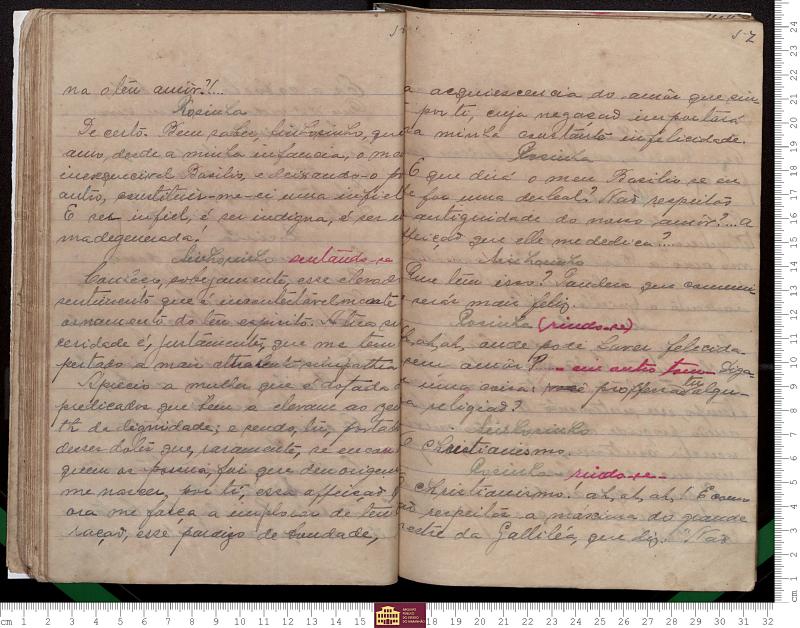 na o teu amôr?!...
Rosinha
De certo. Bem sabes, Sinhosinho, que
amo, desde a minha infancia, o meu
inesquecivel Basilio, e deixando-o por
outro, constituir-me-ei uma infiel
E ser infiel, é ser indigna, é ser
madegenerada!
Sinhosinho sentando-se
Conheço, sobejamente, esse elevado
sentimento que é incontestavelmente
ornamento do teu espirito. A tua sin
ceridade é, justamente, que me tem
pertado a mais attrahente sympathia
Aprecio a mulher que é dotada
predicados que bem a elevam ao zeni
th da dignidade; e sendo, tu, portad
desses dotes que, raramente, se encon
quem os possua, foi que deu origem
me nascer, por ti, essa affeição q
ora me força a implorar de teu
ração, esse paraizo de bondade,
12
a acquiescencia do amôr que sin
por ti, cuja negação importará
a minha constante infelicidade.
Rosinha
E que dirá o meu Basilio se eu
for uma desleal? Não respeitar
antiguidade do nosso amôr?... a
ffeição que elle me dedica?...
Sinhosinho
Que têm isso? Tandera que commi
serás mais feliz.
Rosinha (rindo-se)
ah, ah, onde pode haver felicida-
sem amôr?... em outro tom - Diga-
uma coisa: você professa tu algu-
a religião?
Sinhosinho
O Christianismo.
Rosinha rindo-se-
O Christianismo. ah, ah, ah! E como
não respeitas a maxima do grande
mestre da Galliléa, que diz: "Não